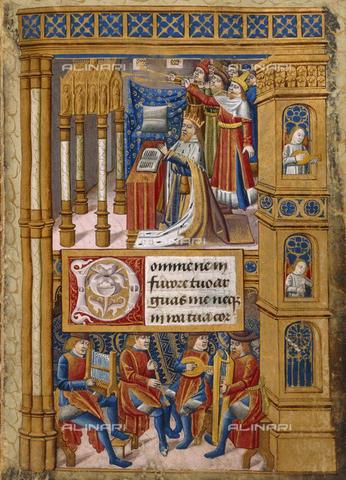 ALINARI
ALINARI
ALINARI
Domine ne in
furore tuo ar
guas me neq
in ira tua cor
ALINARI
ALINARI